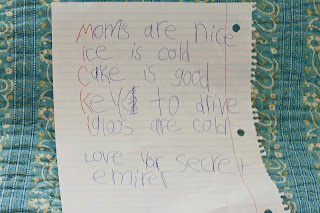 Moms are nice
ice is cold
Cake is good
Keys to drive
Igloos are cold
Love Your secret
emirer